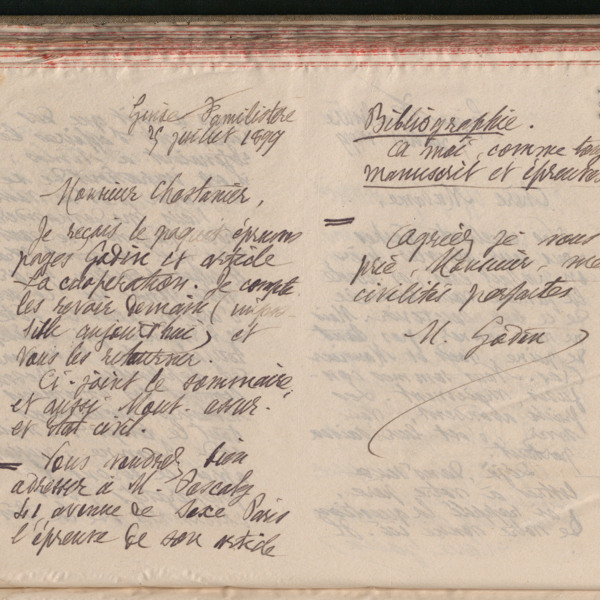 Guise Familistère
25 juillet 1899
Monsieur Chastanier,
Je reçois le paquet épreuves
pages Godin et article
La coopération. Je compte
les revoir demain (impos
sible aujourd'hui) et
vous les retourner.
Ci-joint le sommaire,
et aussi Mout. assur.
et état civil.
Vous voudrez bien
adresser à M. Pascaly
41 avenue de Saxe Paris
l'épreuve de son article
Bibliographie.
à moi, comme
manuscrit et épreuves
Agréez je vous
prie, Monsieur, mes
civilités parfaites
M. Godin